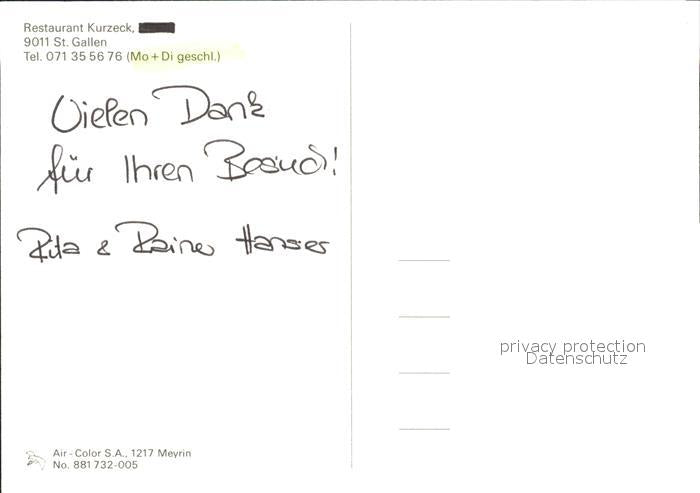 Restaurant Kurzeck,
9011 St. Gallen
Tel. 071 35 56 76 (Mo + Di geschl.)
Vielen Dank
für Ihren Besuch!
Rita & Rainer Hanser
privacy protection
Datenschutz
Air - Color S.A., 1217 Meyrin
No. 881 732-005